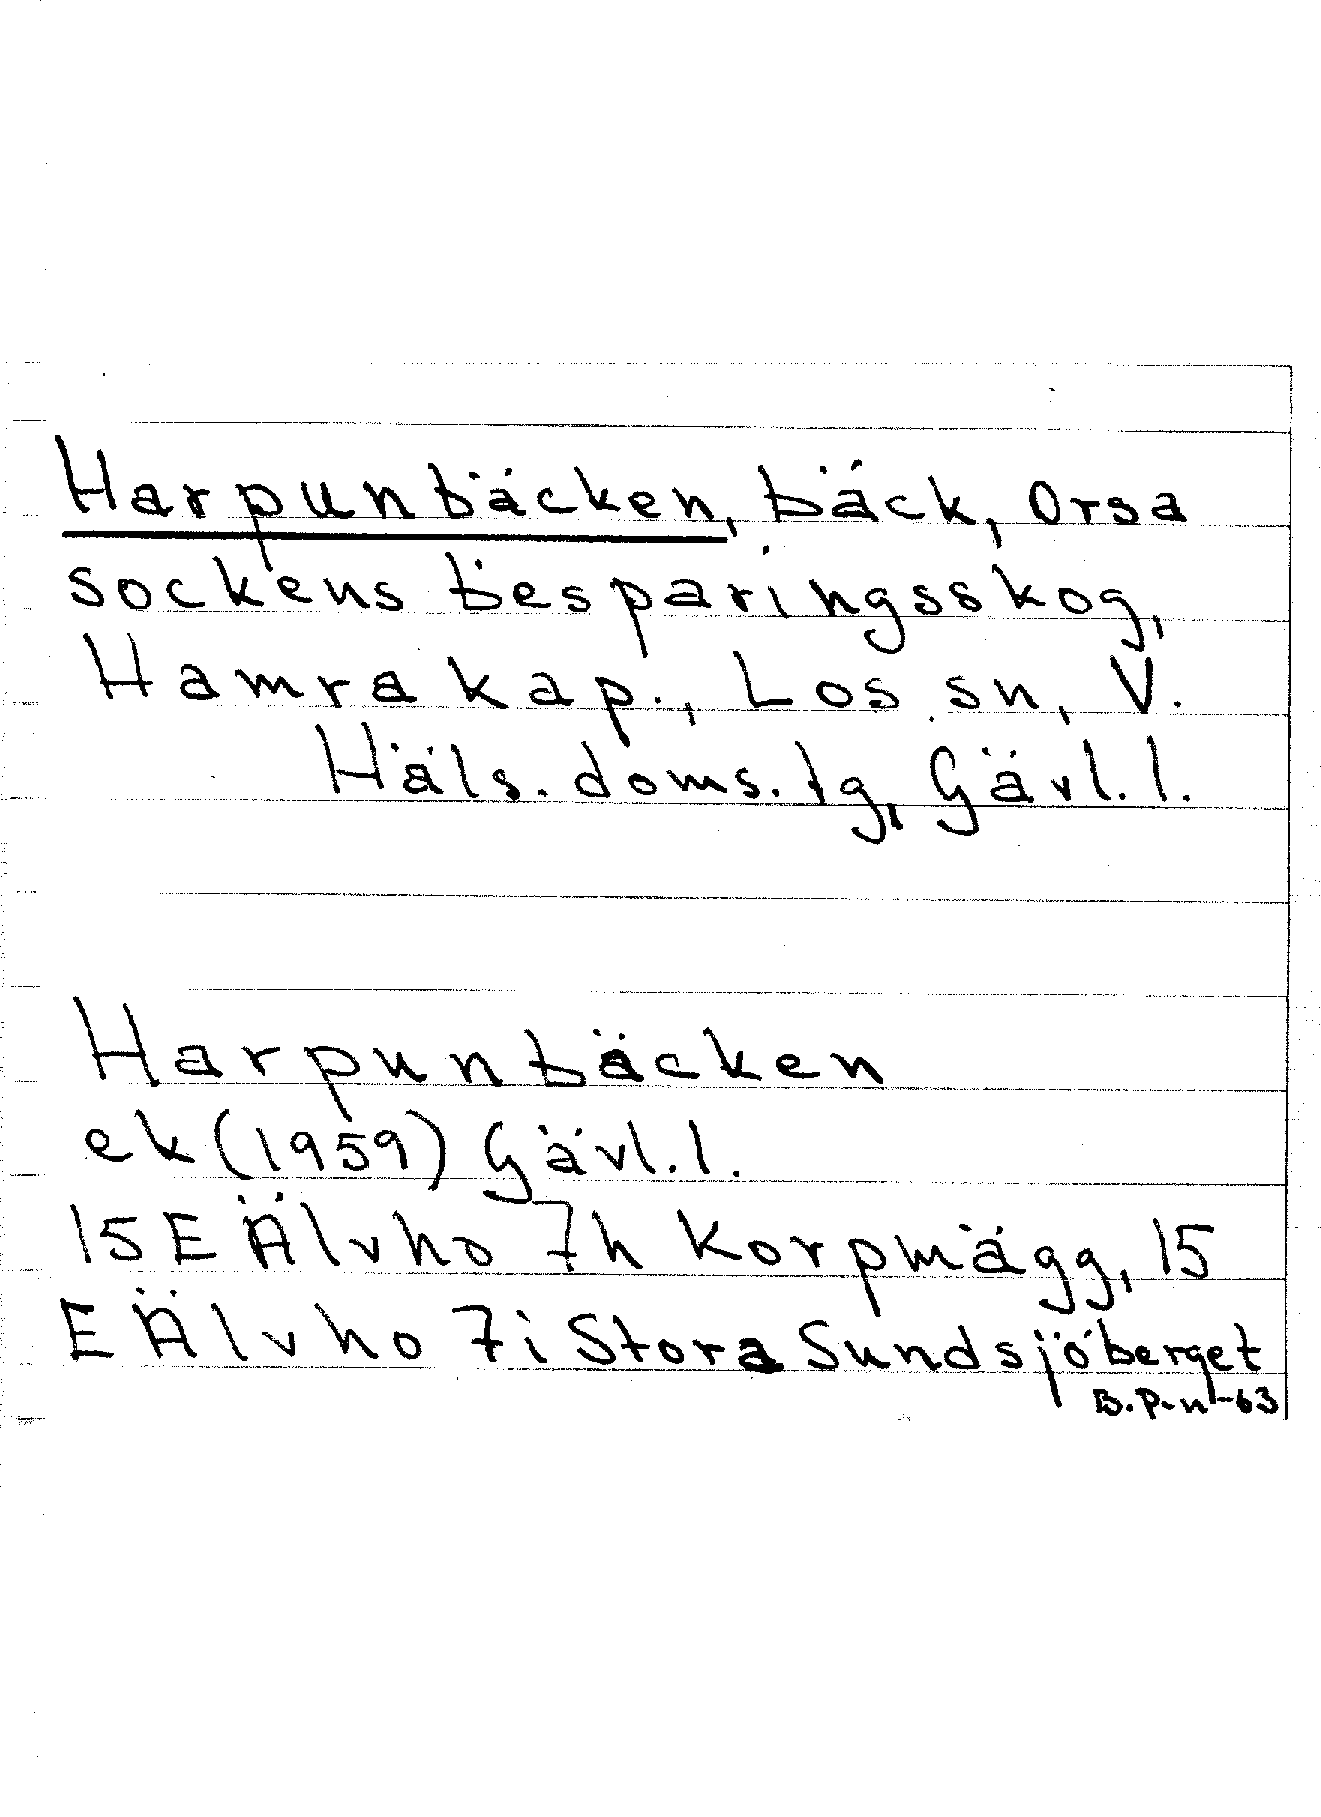 Harpunbäcken, bäck, Orsa
sockens besparingsskog,
Hamra kap., Los sn, V.
Häls. doms. tg, Gävl. l.
Harpunbäcken
ek (1959) Gävl. l.
15 E Älvho 7h Korpmägg, 15
E Älvho 7i Stora Sundsjöberget
B. P-n -63